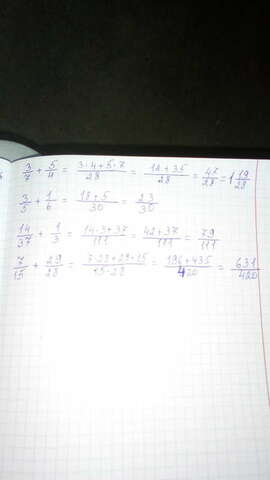 3/7 + 5/4 = (3·4+5·7)/28 = (12+35)/28 = 47/28 = 1 19/28
3/5 + 1/6 = (18+5)/30 = 23/30
14/37 + 1/3 = (14·3+37)/111 = (42+37)/111 = 79/111
7/15 + 29/28 = (7·28+29·15)/(15·28) = (196+435)/420 = 631/420